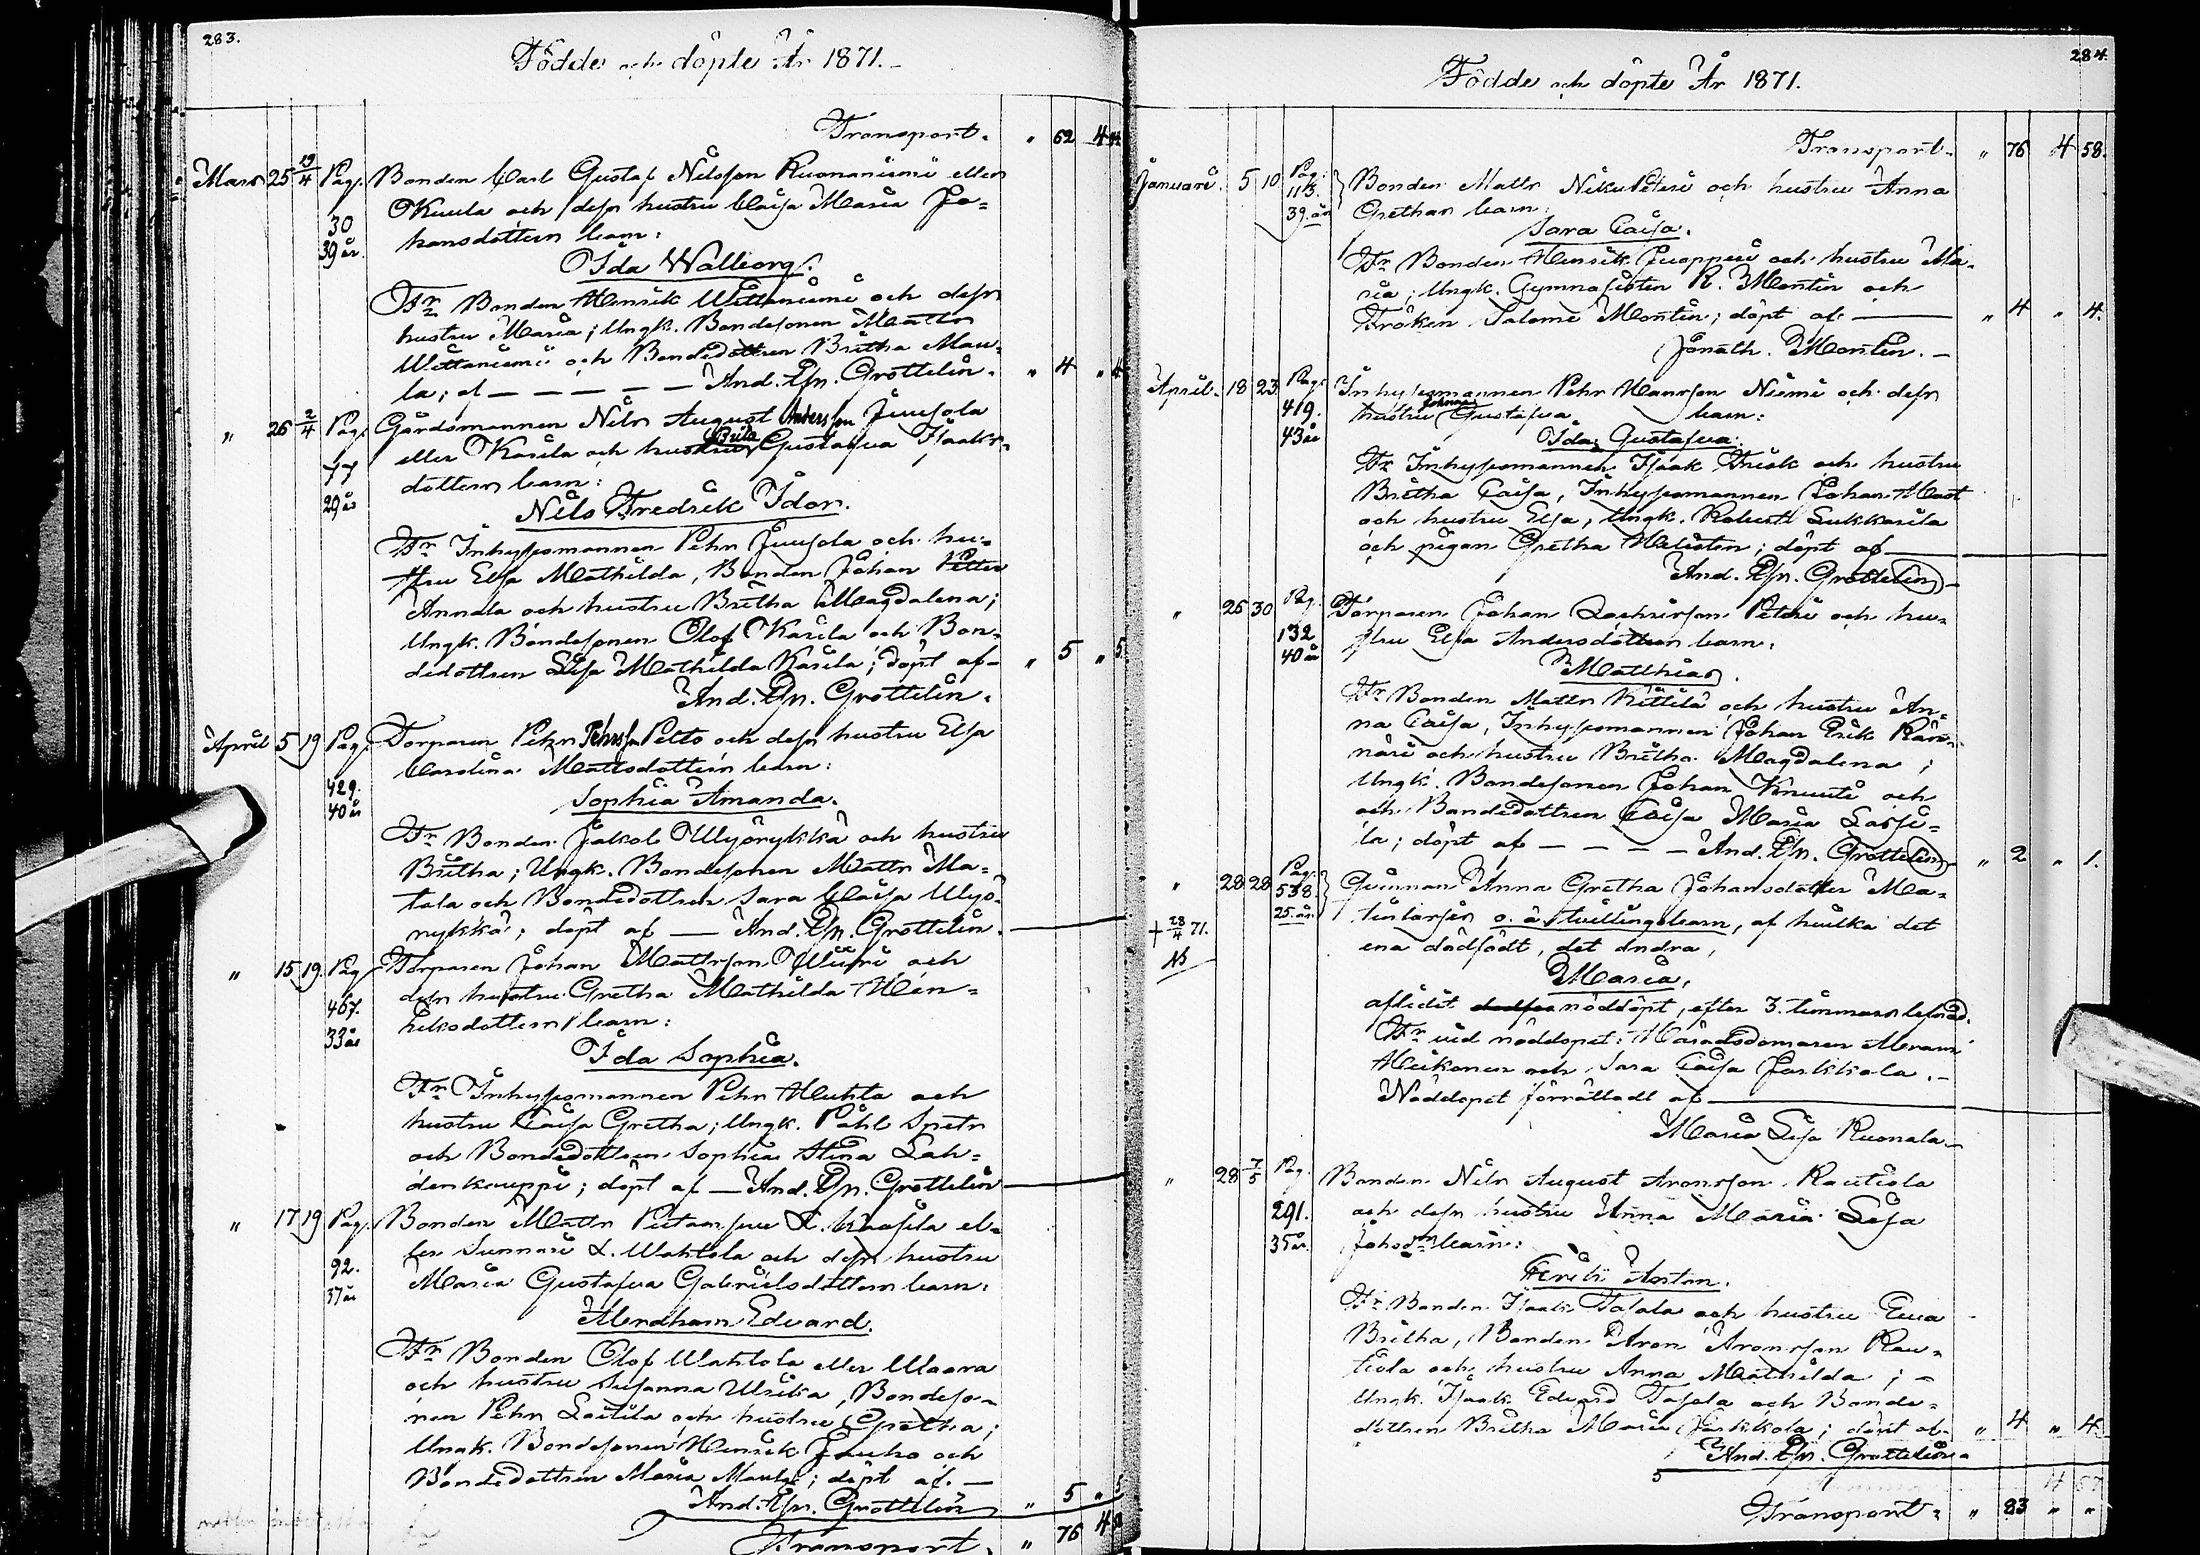 283.
Födde och döpte År 1871.
Transport. " 62 4
Mars 25 19/4 Pag. Bonden Carl Gustaf Nilsson Ruonaniemi eller
30 Kuula och dess hustru Caisa Maria Jo=
39 år hansdotters barn:
Ida Walborg.
Fr Bonden Henrik Wittaniemi och dess
hustru Maria; Ungk. Bondesonen Matts
Wittaniemi och Bondedottren Britha Mau=
la; af — — — — And. Efr. Grottelin. " 4 " 4
" 26 2/4 Pag. Gårdsmannen Nils August Andersson Juusola
77 eller Karila och hustru Brita Gustafva Isaaks=
29 år dotters barn:
Nils Fredrik Idor.
Fr Inhysesmannen Pehr Juusola och hu=
stru Elsa Mathilda, Bonden Johan Petter
Annala och hustru Britha Magdalena;
Ungk. Bondesonen Olof Karila och Bon=
dedottren Lisa Mathilda Karila; döpt af — " 5 " 5
And. Efr. Grottelin.
April 5 19 Pag. Torparen Pehr Pehrss Pelto och dess hustru Elsa
429. Carolina Mattsdotters barn:
40 år Sophia Amanda.
Fr Bonden Jakob Ylijörykkä och hustru
Britha; Ungk. Bondesonen Matts Ma=
tala och Bondedottren Sara Caisa Ylijö=
nykkä; döpt af — And. Efr. Grottelin.
" 15 19. Pag. Torparen Johan Mattsson och
467. dess hustru Gretha Mathilda Hen=
33 år riksdotters barn:
Ida Sophia.
Fr Inhysesmannen Pehr Huhta och
hustru Caisa Gretha; Ungk. Påhl Spets
och Bondedottren Sophia Stina Lah=
denkauppi; döpt af — And. Efr. Grottelin
" 17 19 Pag. Bonden Matts L. el=
92. ler Sunnari L. Wahtola och dess hustru
37 år Maria Gustafva Gabrielsdotters barn:
Abraham Edvard.
Fr Bonden Olof Wahtola eller Waara
och hustru Susanna Ulrika, Bondeso=
nen Pehr Laitila och hustru Gretha;
Ungk. Bondesonen Henrik Jauho och
Bondedottren Maria; döpt af. —
And. Efr. Grottelin " 5 "
Transport. " 76 4
284.
Födde och döpte År 1871.
Transport. " 76 4 58.
Januari. 5 10 Pag. Bonden Matts NikuPeteri och hustru Anna
113. Grethas barn:
39. år Sara Caisa.
Fr Bonden Henrik Kuoppari och hustru Ma=
ria; Ungk. Gymnasisten R. Montin och
Fröken Salome Montin; döpt af — " 4 " 4.
Jonath. Montin. —
April. 18 23 Pag. Inhysesmannen Pehr Hansson Niemi och dess
419. hustru Johanna Gustafva barn:
43 år Ida Gustafva.
Fr Inhysesmannen Isaak Frisk och hustru
Britha Caisa, Inhysesmannen Johan Mast
och hustru Elsa, Ungk. Robert Lukkarila
och pigan Gretha Helisten; döpt af —
And. Efr. Grottelin —
" 26 30 Pag. Torparen Johan Zachrisson Peteri och hu=
132 stru Elsa Andersdotters barn:
40 år Matthias.
Fr Bonden Matts Kittilä och hustru An=
na Caisa, Inhysesmannen Johan Erik
näri och hustru Britha Magdalena;
Ungk. Bondesonen Johan Knuuti och
och Bondedottren Caisa Maria Lassi=
la; döpt af — — — — And. Efr. Grottelin " 2 " 1.
" 28 28 Pag. Qvinnan Anna Gretha Johansdotter Ma=
538. o. ä. tvillingsbarn, af hvilka det
25. år. ena dödfödt, det andra,
† 28/4 71.
Maria,
aflidit nöddöpt, efter 3. timmars lefnad.
Fr vid nöddopet: Häradsdomaren Abram
Heikonen och Sara Caisa Jaskkola. —
Nöddopet förrättadt af —
Maria Lisa Ruonala.
" 28 7/5 Pag. Bonden Nils August Aronsson Rautiola
291. och dess hustru Anna Maria Lisa
35 år. Johsdrs barn:
Anton.
Fr Bonden Isaak Tasala och hustru Eva
Britha, Bonden Aron Aronsson Rau=
tiola och hustru Anna Mathilda; —
Ungk. Isaak Edvard Tasala och Bonde=
dottren Britha Maria Jaskkola; döpt af " 4 " 4.
And. Efr. Grottelin.
Transport. " 83 " "